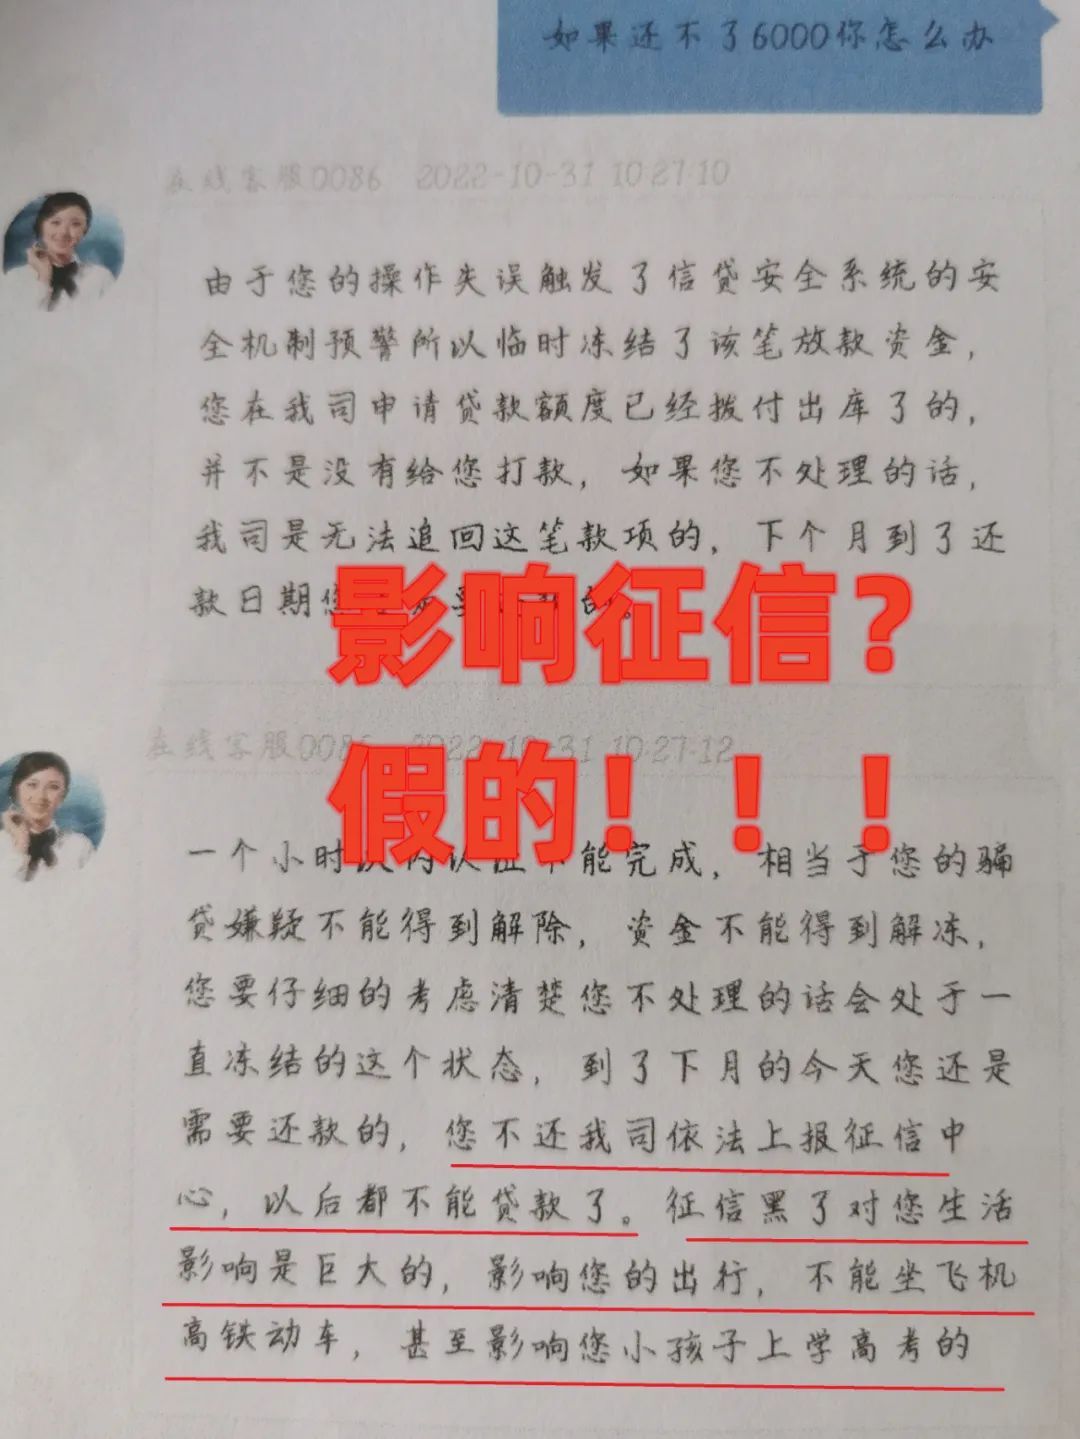 如果还不了6000你怎么办
在线客服0086 2022-10-31 10:27:10
由于您的操作失误触发了信贷安全系统的安
全机制预警所以临时冻结了该笔放款资金，
您在我司申请贷款额度已经拨付出库了的，
并不是没有给您打款，如果您不处理的话，
我司是无法追回这笔款项的，下个月到了还
款日期您
影响征信？
在线客服0086 2022-10-31 10:27:12
假的！！！
一个小时以内认证不能完成，相当于您的骗
贷嫌疑不能得到解除，资金不能得到解冻，
您要仔细的考虑清楚您不处理的话会处于一
直冻结的这个状态，到了下月的今天您还是
需要还款的，您不还我司依法上报征信中
心，以后都不能贷款了。征信黑了对您生活
影响是巨大的，影响您的出行，不能坐飞机
高铁动车，甚至影响您小孩子上学高考的